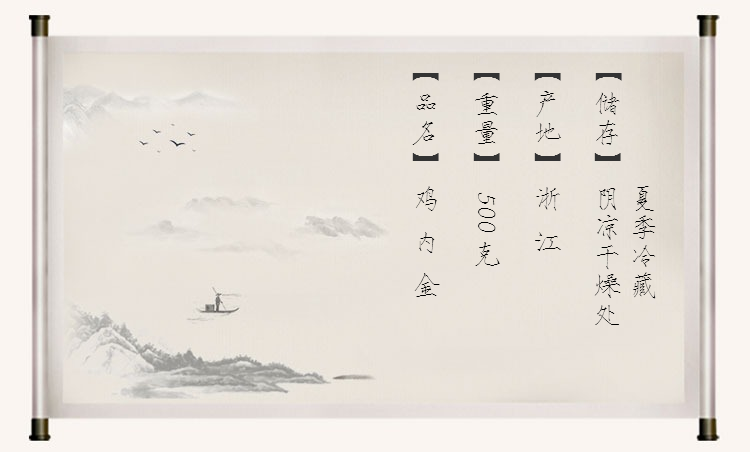 【品名】鸡内金
【重量】500克
【产地】浙江
【储存】阴凉干燥处
夏季冷藏